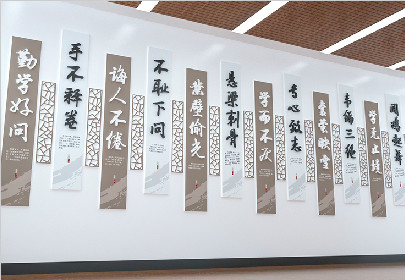 勤学好问
手不释卷
诲人不倦
不耻下问
凿壁偷光
悬梁刺骨
学而不厌
专心致志
囊萤映雪
韦编三绝
学无止境
闻鸡起舞